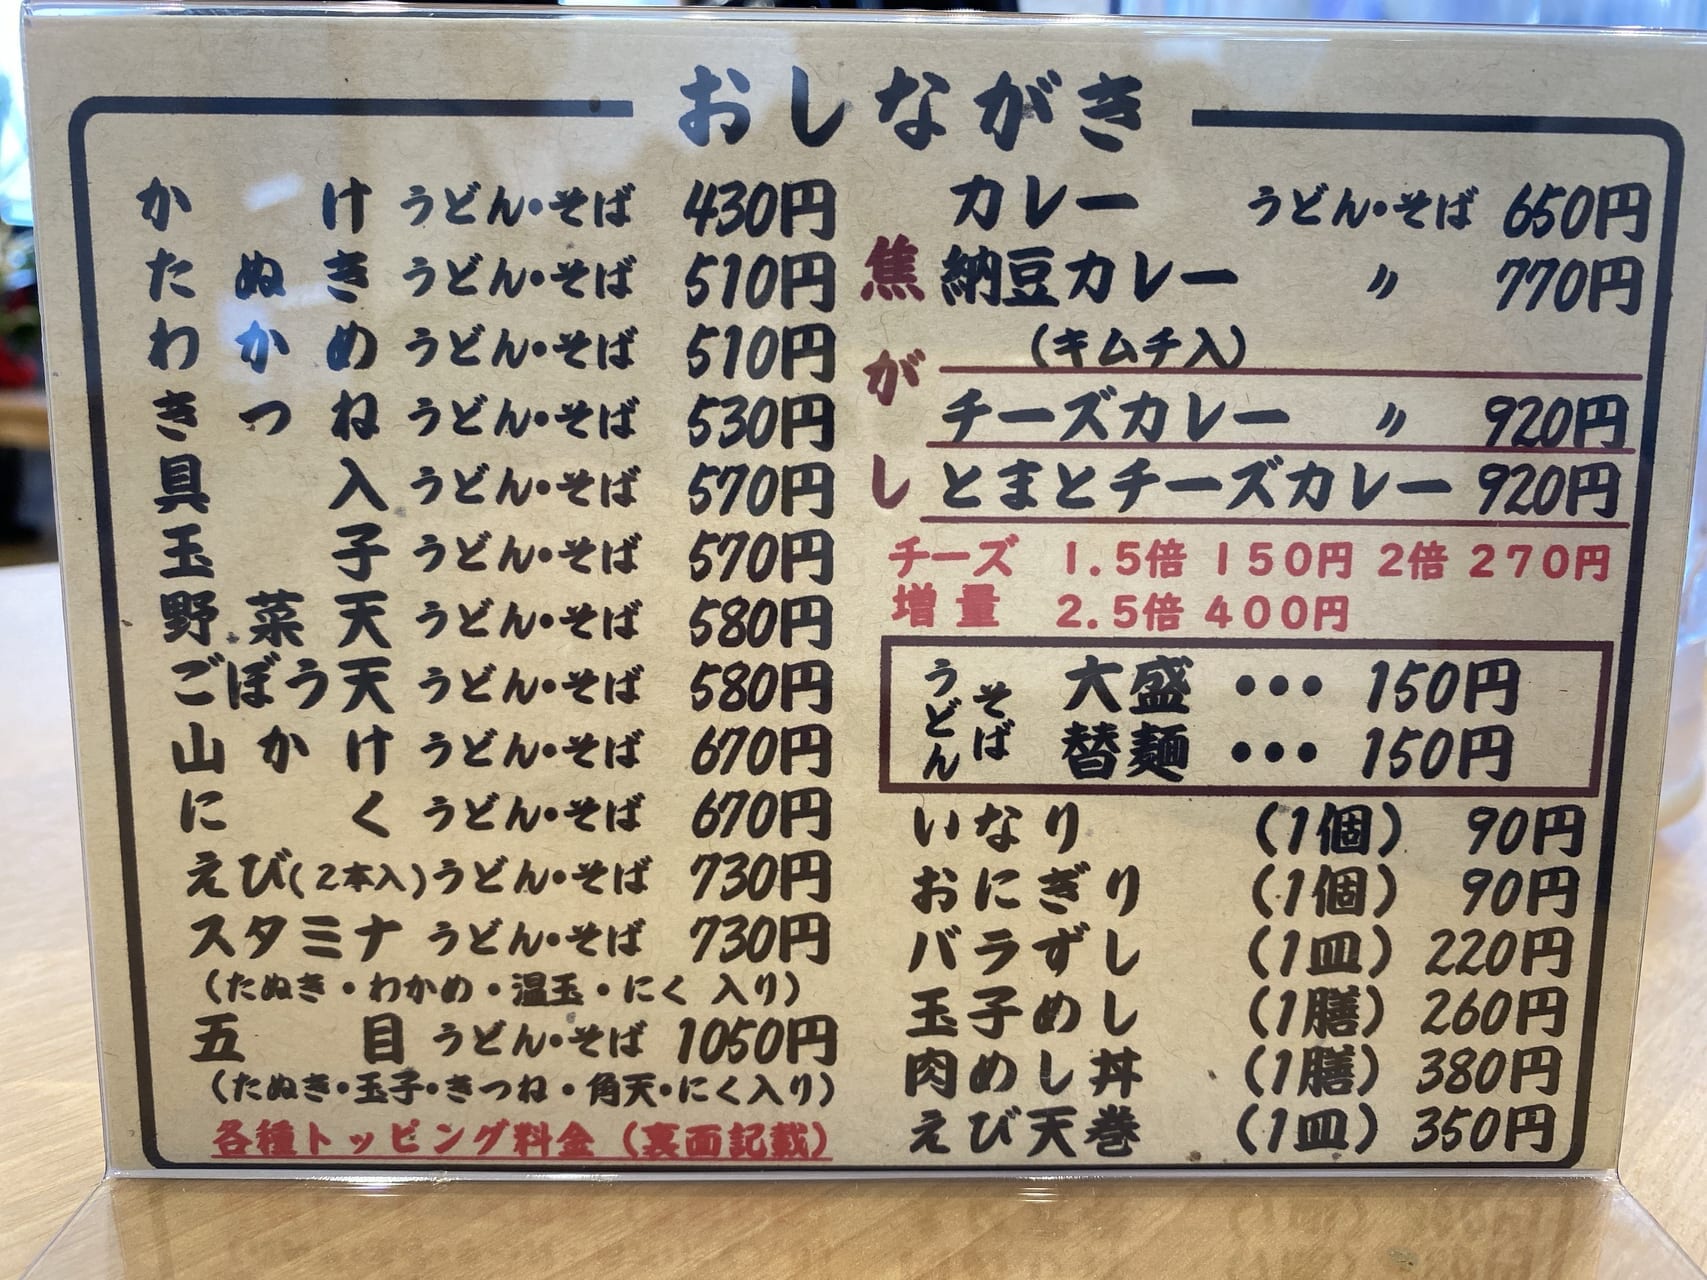 おしながき
かけ うどん・そば 430円
たぬき うどん・そば 510円
わかめ うどん・そば 510円
きつね うどん・そば 530円
具入 うどん・そば 570円
玉子 うどん・そば 570円
野菜天 うどん・そば 580円
ごぼう天 うどん・そば 580円
山かけ うどん・そば 670円
にく うどん・そば 670円
えび(2本入)うどん・そば 730円
スタミナ うどん・そば 730円
(たぬき・わかめ・温玉・にく 入り)
五目 うどん・そば 1050円
(たぬき・玉子・きつね・角天・にく入り)
各種トッピング料金(裏面記載)
カレー うどん・そば 650円
納豆カレー 〃 770円
(キムチ入)
焦がし
チーズカレー 〃 920円
とまとチーズカレー 920円
チーズ 1.5倍 150円 2倍 270円
増量 2.5倍 400円
うどん そば
大盛 ・・・ 150円
替麺 ・・・ 150円
いなり (1個) 90円
おにぎり (1個) 90円
バラずし (1皿) 220円
玉子めし (1膳) 260円
肉めし丼 (1膳) 380円
えび天巻 (1皿) 350円